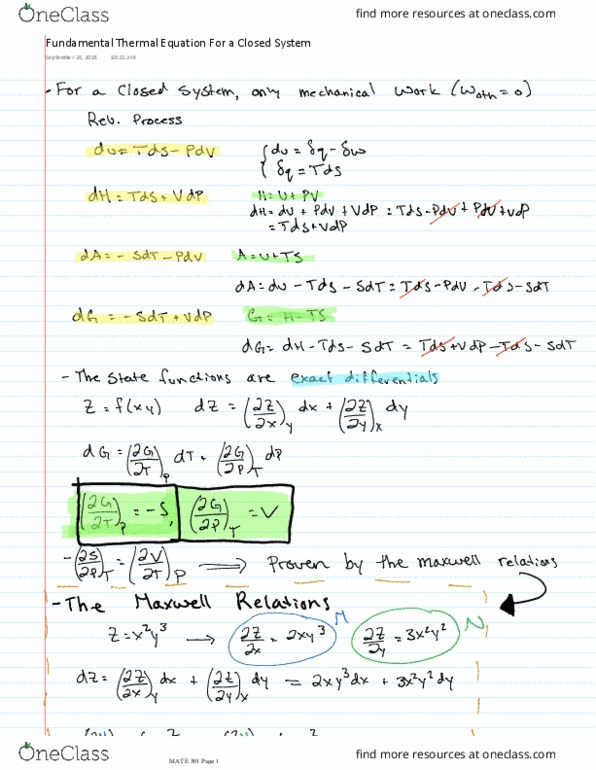 OneClass
find more resources at oneclass.com
Fundamental Thermal Equation For a Closed System
September 28, 2015 10:22 AM
- For a Closed System, only mechanical work (Woth = 0)
Rev. Process
dU = TdS - PdV { dU = δq - δw
{ δq = TdS
dH = TdS + VdP H = U + PV
dH = dU + PdV + VdP = TdS - PdV + PdV + VdP
= TdS + VdP
dA = - SdT - PdV A = U + TS
dA = dU - TdS - SdT = TdS - PdV - TdS - SdT
dG = - SdT + VdP G = H - TS
dG = dH - TdS - SdT = TdS + VdP - TdS - SdT
- The State functions are exact differentials
Z = f(xy) dZ = (∂Z/∂x)y dx + (∂Z/∂y)x dy
dG = (∂G/∂T)P dT + (∂G/∂P)T dP
(∂G/∂T)P = -S, (∂G/∂P)T = V
- (∂S/∂P)T = (∂V/∂T)P ⟹ Proven by the maxwell relations
- The Maxwell Relations
Z = x²y³ → ∂Z/∂x = 2xy³ M ∂Z/∂y = 3x²y² N
dZ = (∂Z/∂x)y dx + (∂Z/∂y)x dy = 2xy³dx + 3x²y²dy
OneClass
MATE 301 Page 1
find more resources at oneclass.com